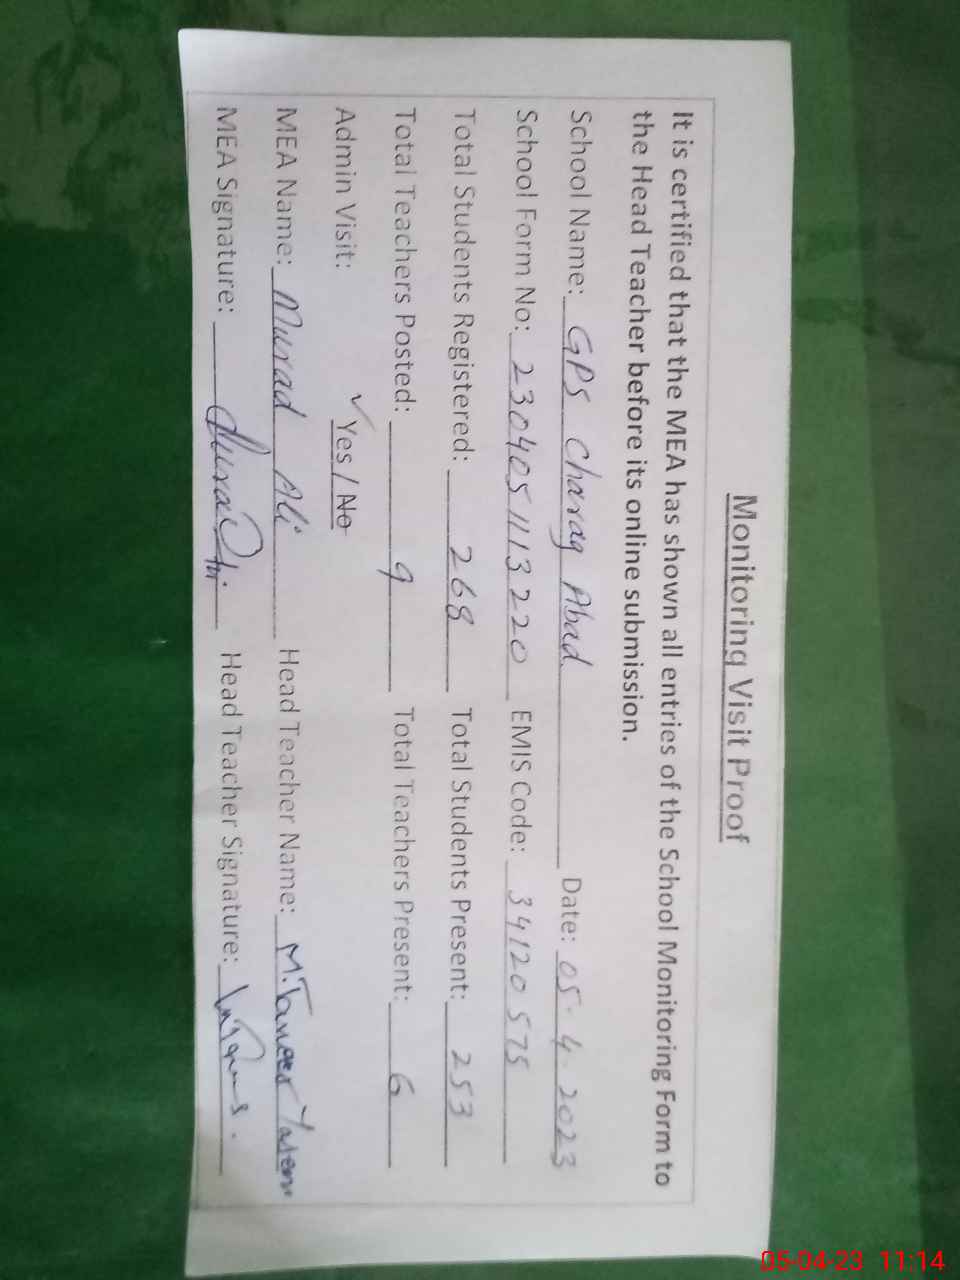 Monitoring Visit Proof
It is certified that the MEA has shown all entries of the School Monitoring Form to
the Head Teacher before its online submission.
School Name: GPS Charag Abad Date: 05-4-2023
School Form No: 2304051113220 EMIS Code: 34120575
Total Students Registered: 268 Total Students Present: 253
Total Teachers Posted: 9 Total Teachers Present: 6
Admin Visit: ✓Yes / No
MEA Name: Murad Ali Head Teacher Name: M.
MEA Signature: Head Teacher Signature:
05-04-23 11:14